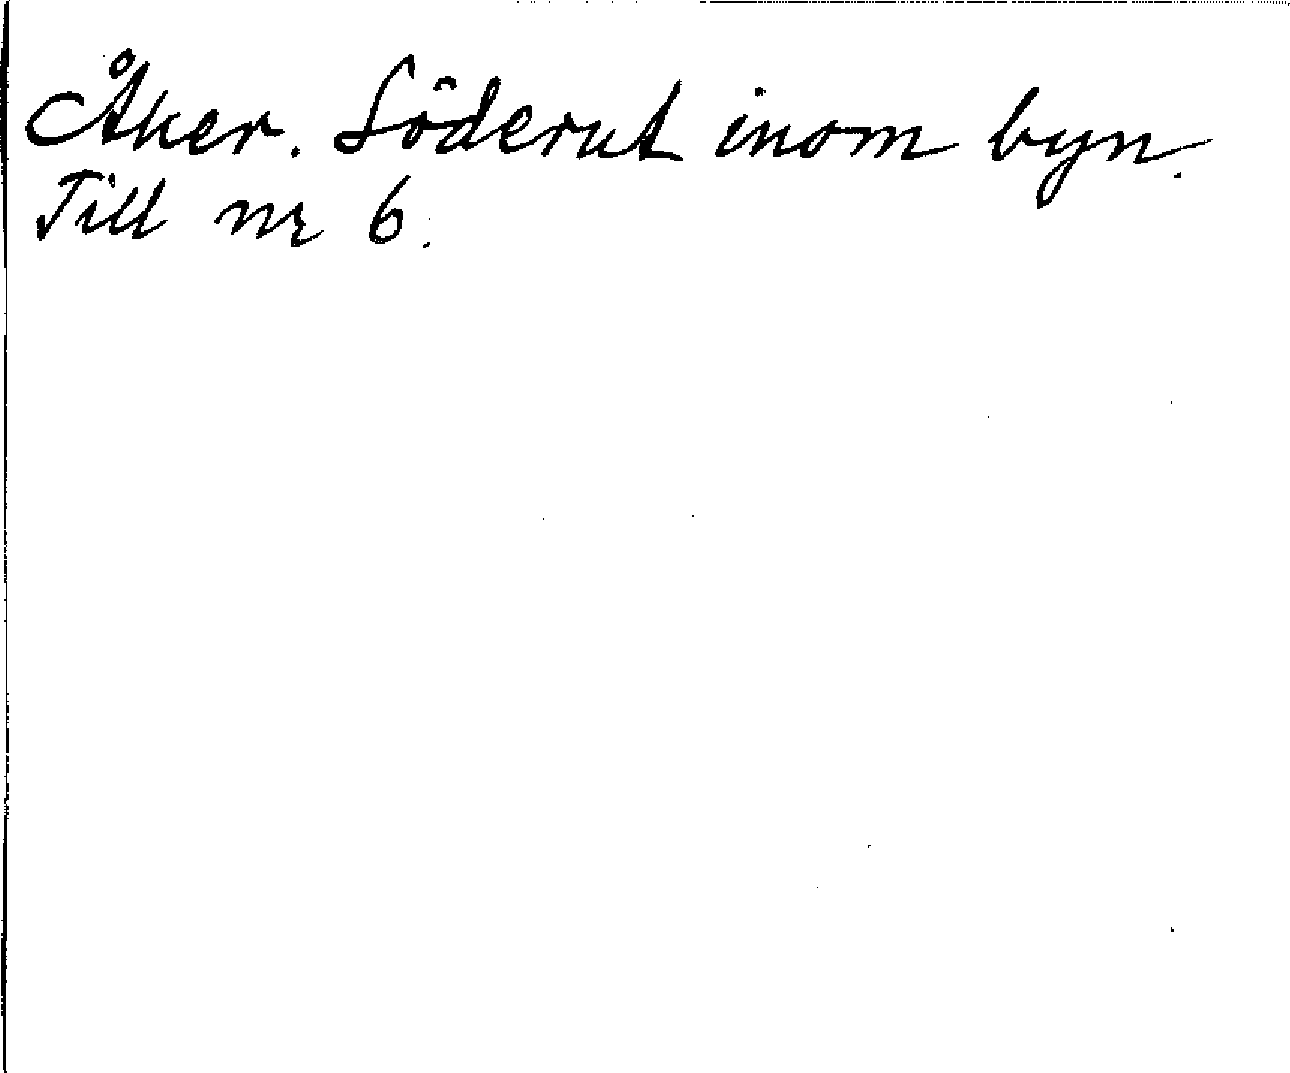 Åker. Söderut inom byn.
Till nr 6.